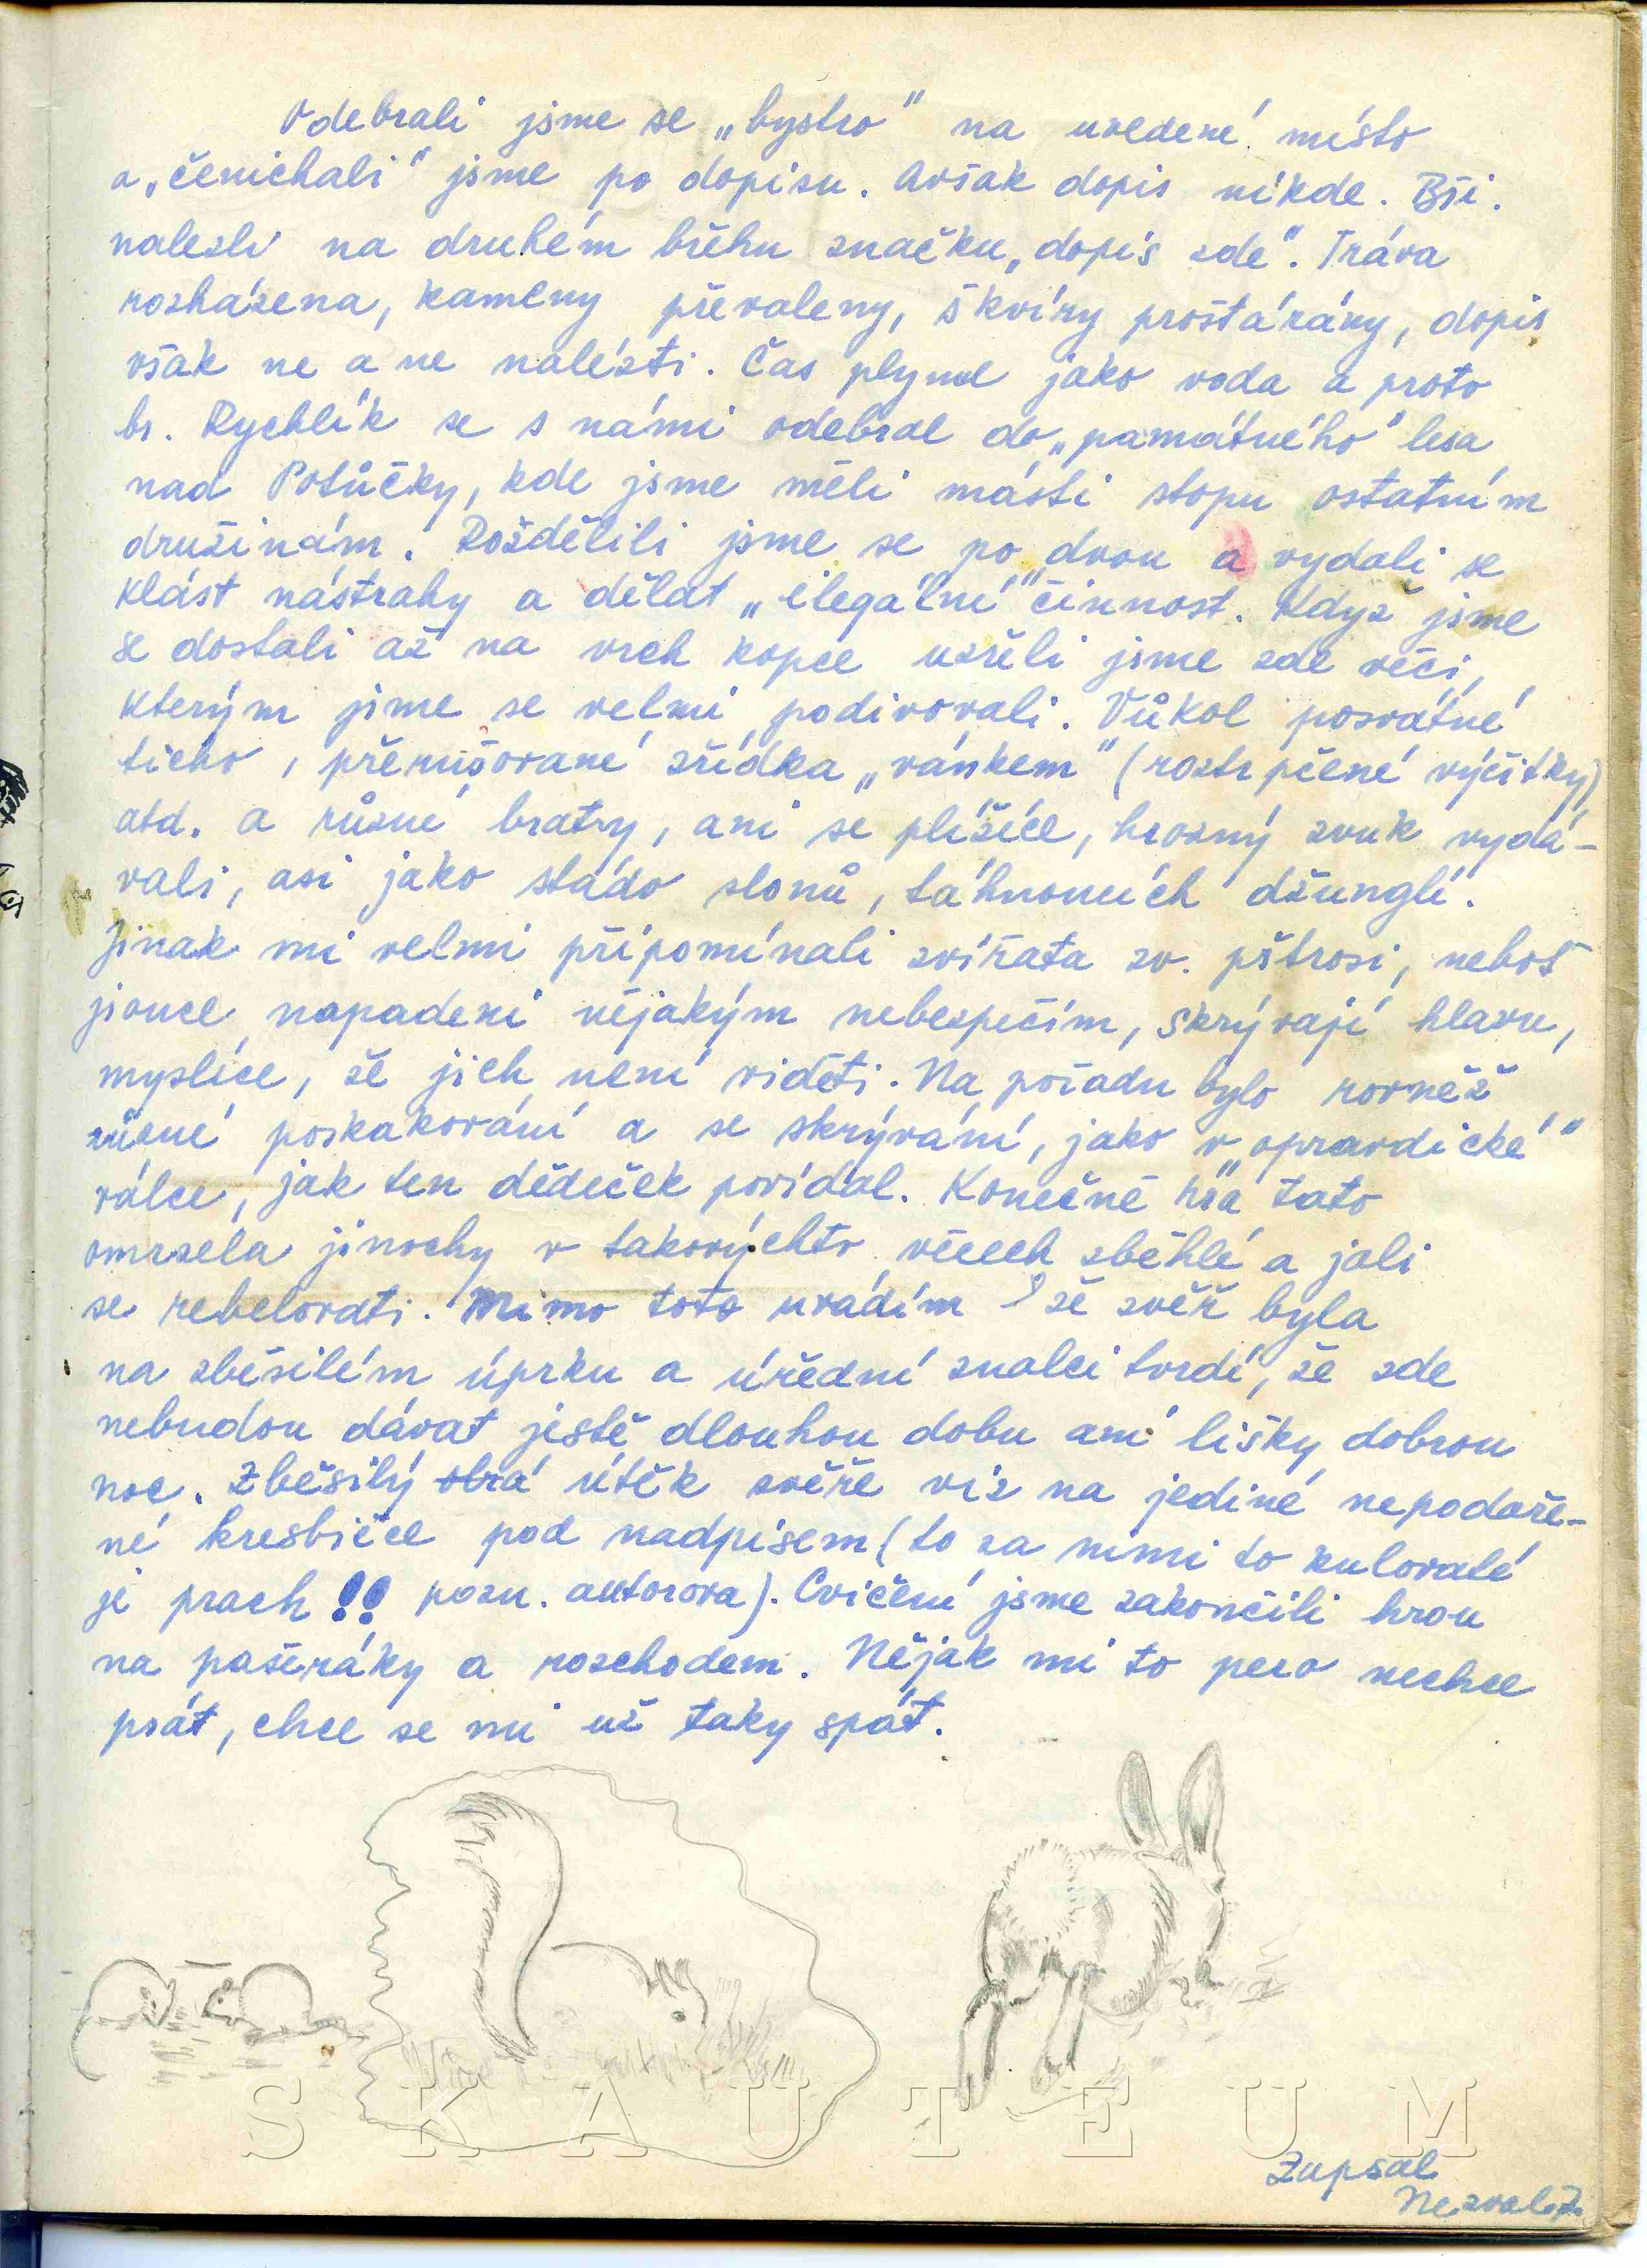 Odebrali jsme se „bystro" na uvedené místo
a „čenichali" jsme po dopisu. Avšak dopis nikde. Bři.
nalezli na druhém břehu značku „dopis zde". Tráva
rozházena, kameny převaleny, škvíry proštárány, dopis
však ne a ne nalézti. Čas plynul jako voda a proto
br. Rychlík se s námi odebral do „památného" lesa
nad Potůčky, kde jsme měli másti stopu ostatním
družinám. Rozdělili jsme se po dvou a vydali se
klást nástrahy a dělat „ilegální" činnost. Když jsme
se dostali až na vrch kopce uzřeli jsme zde věci,
kterým jsme se velmi podivovali. Vůkol posvátné
ticho, přerušované zřídka „vánkem" (roztrpčené výčitky)
atd. a různé bratry, ani se plížíce, hrozný zvuk vydá-
vali, asi jako stádo slonů, táhnoucích džunglí.
Jinak mi velmi připomínali zvířata zv. pštrosi, neboť
jsouce napadeni nějakým nebezpečím, skrývají hlavu,
myslíce, že jich není viděti. Na pořadu bylo rovněž
různé poskakování a se skrývání, jako v „opravdické"
válce, jak ten dědeček povídal. Konečně hra tato
omrzela jinochy v takovýchto věcech zběhlé a jali
se rebelovati. Mimo toto uvádím že zvěř byla
na zběsilém úprku a úřední znalci tvrdí, že zde
nebudou dávat ještě dlouhou dobu ani lišky dobrou
noc. Zběsilý útěk zvěře viz na jediné nepodaře-
né kresbičce pod nadpisem (to za nimi to kulovaté
je prach !! pozn. autorova). Cvičení jsme zakončili hrou
na pašeráky a rozchodem. Nějak mi to pero nechce
psát, chce se mi už taky spát.
SKAUTEUM
Zapsal
Nezval Z.